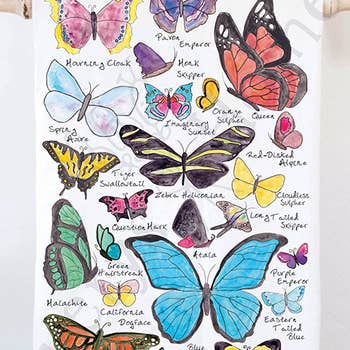 Paven
Emperor
Mourning Cloak
Monk
Skipper
Orange
Sulpher
Queen
Spring
Azure
Imaginary
Sunset
Red-Disked
Alpine
Tiger
Swallowtail
Zebra Heliconian
Cloudless
Sulpher
Question Mark
Long Tailed
Skipper
Atala
Green
Hairstreak
Purple
Emperor
Malachite
California
Dogface
Eastern
Tailed
Blue
Blue